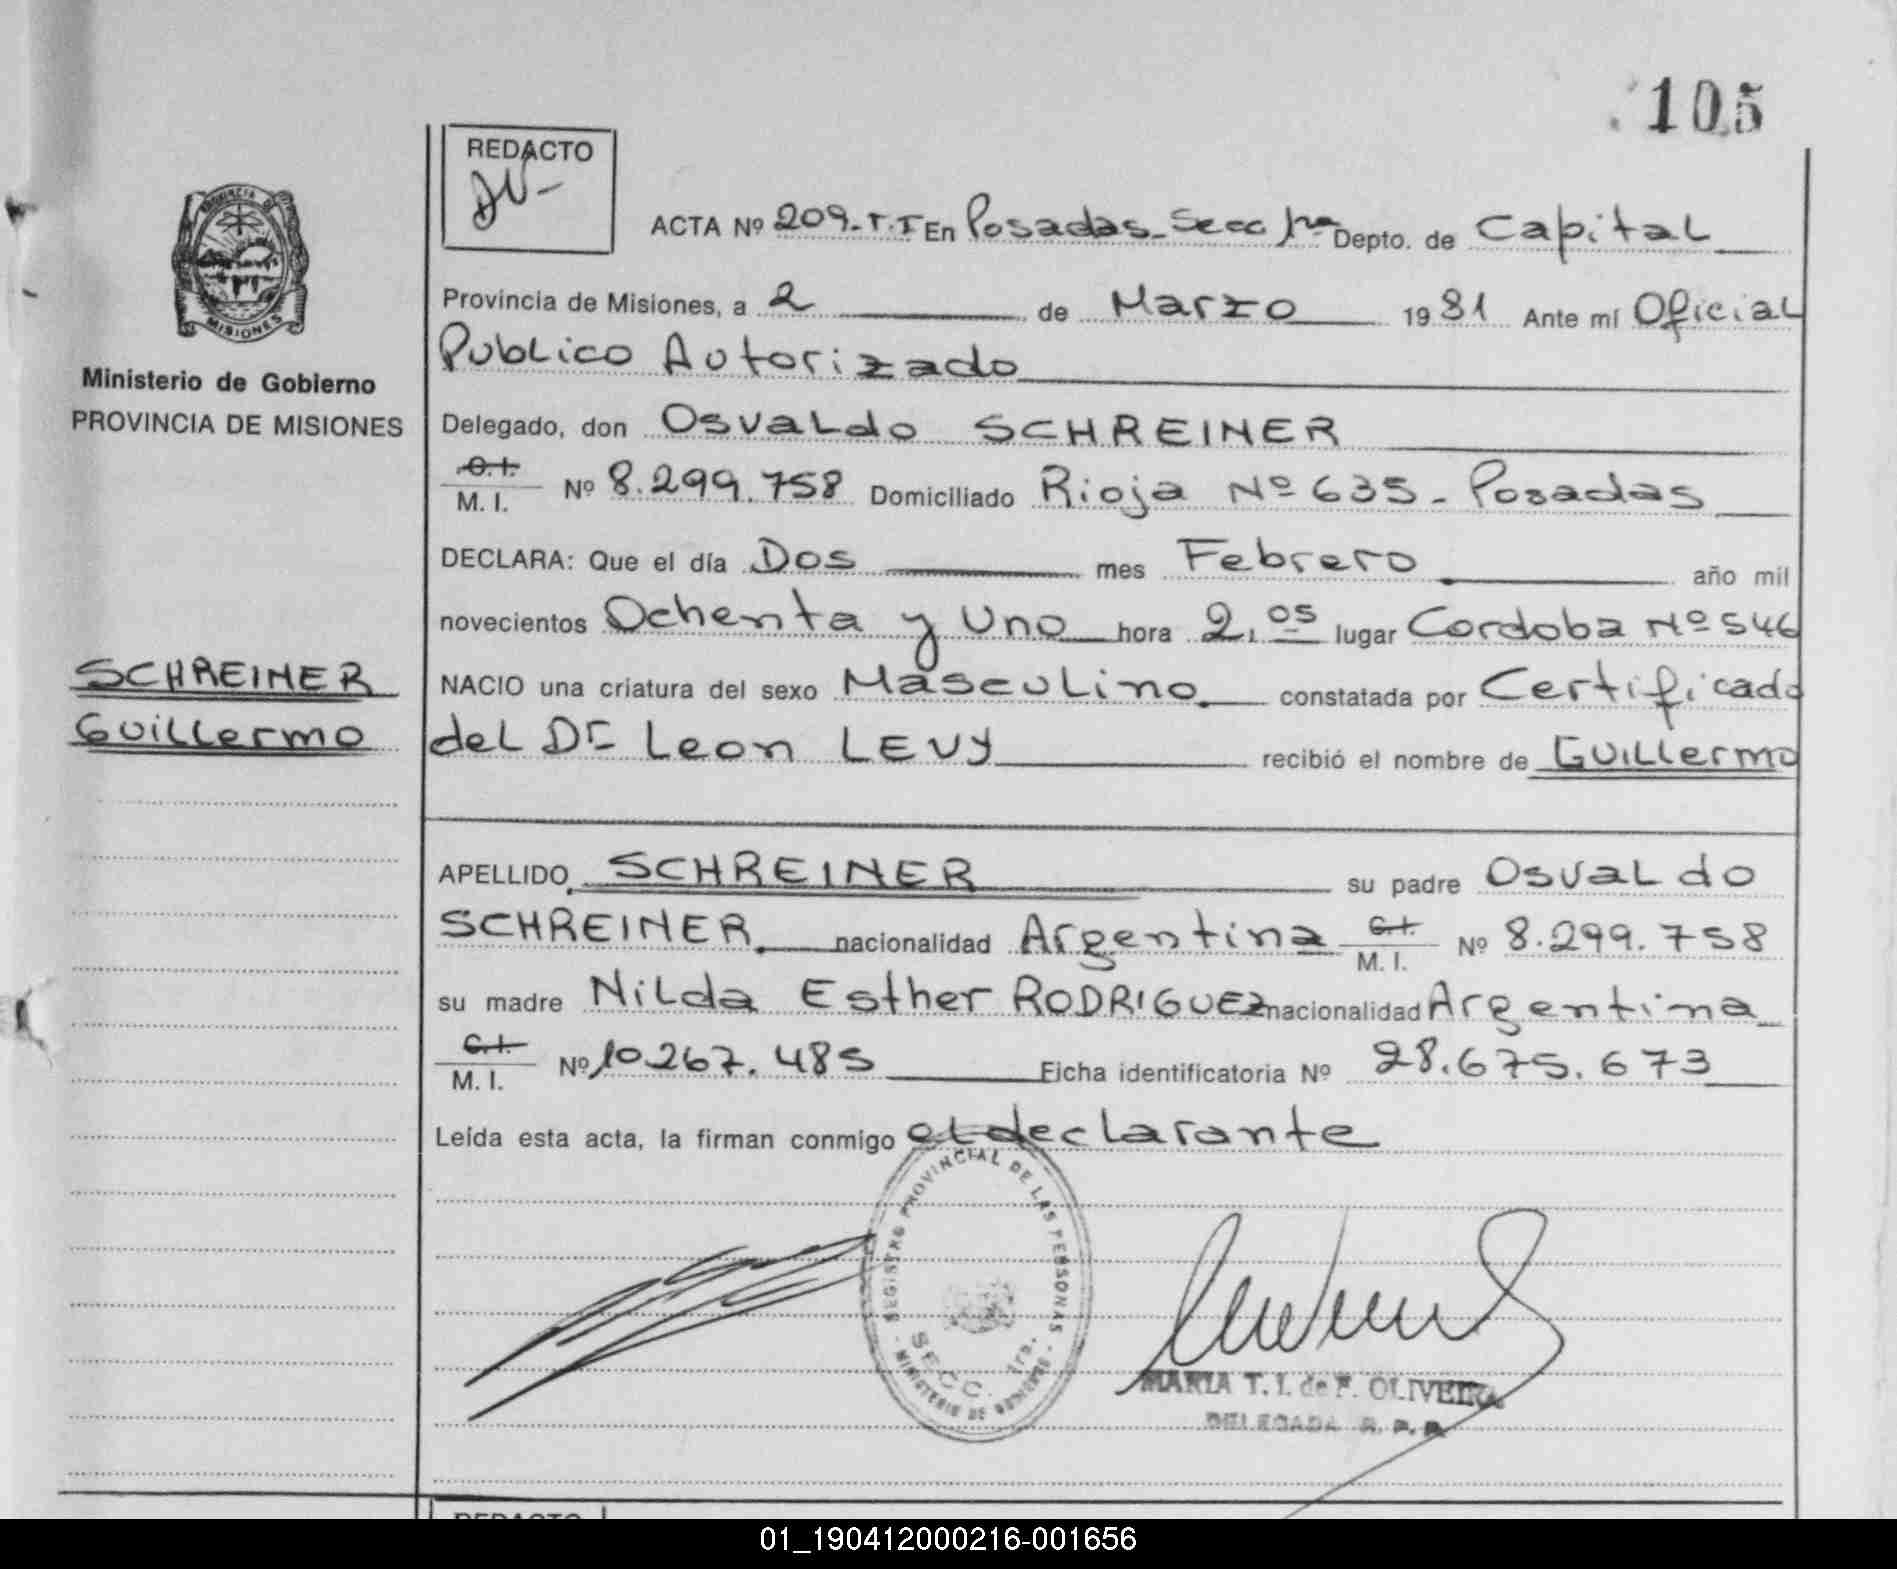 105
REDACTO
PROVINCIA DE
MISIONES
Ministerio de Gobierno
PROVINCIA DE MISIONES
ACTA Nº 209-T.I En Posadas-Secc 1ra Depto. de Capital
Provincia de Misiones, a 2 de Marzo 1981 Ante mí Oficial
Publico Autorizado
Delegado, don Osvaldo SCHREINER
C.I.
M. I. Nº 8.299.758 Domiciliado Rioja Nº 635- Posadas
DECLARA: Que el día Dos mes Febrero año mil
novecientos Ochenta y Uno hora 2,05 lugar Cordoba Nº 546
SCHREINER
Guillermo
NACIO una criatura del sexo Masculino constatada por Certificado
del Dr Leon LEVY recibió el nombre de Guillermo
APELLIDO SCHREINER su padre Osvaldo
SCHREINER nacionalidad Argentina C.I. M. I. Nº 8.299.758
su madre Nilda Esther RODRIGUEZ nacionalidad Argentina
C.I.
M. I. Nº 10.267.485 Ficha identificatoria Nº 28.675.673
Leída esta acta, la firman conmigo el declarante
REGISTRO PROVINCIAL DE LAS PERSONAS
SECC. 1ra.
MINISTERIO DE GOBIERNO
MARIA T. I. de F. OLIVEIRA
DELEGADA R. P. P.
REDACTO
01_190412000216-001656